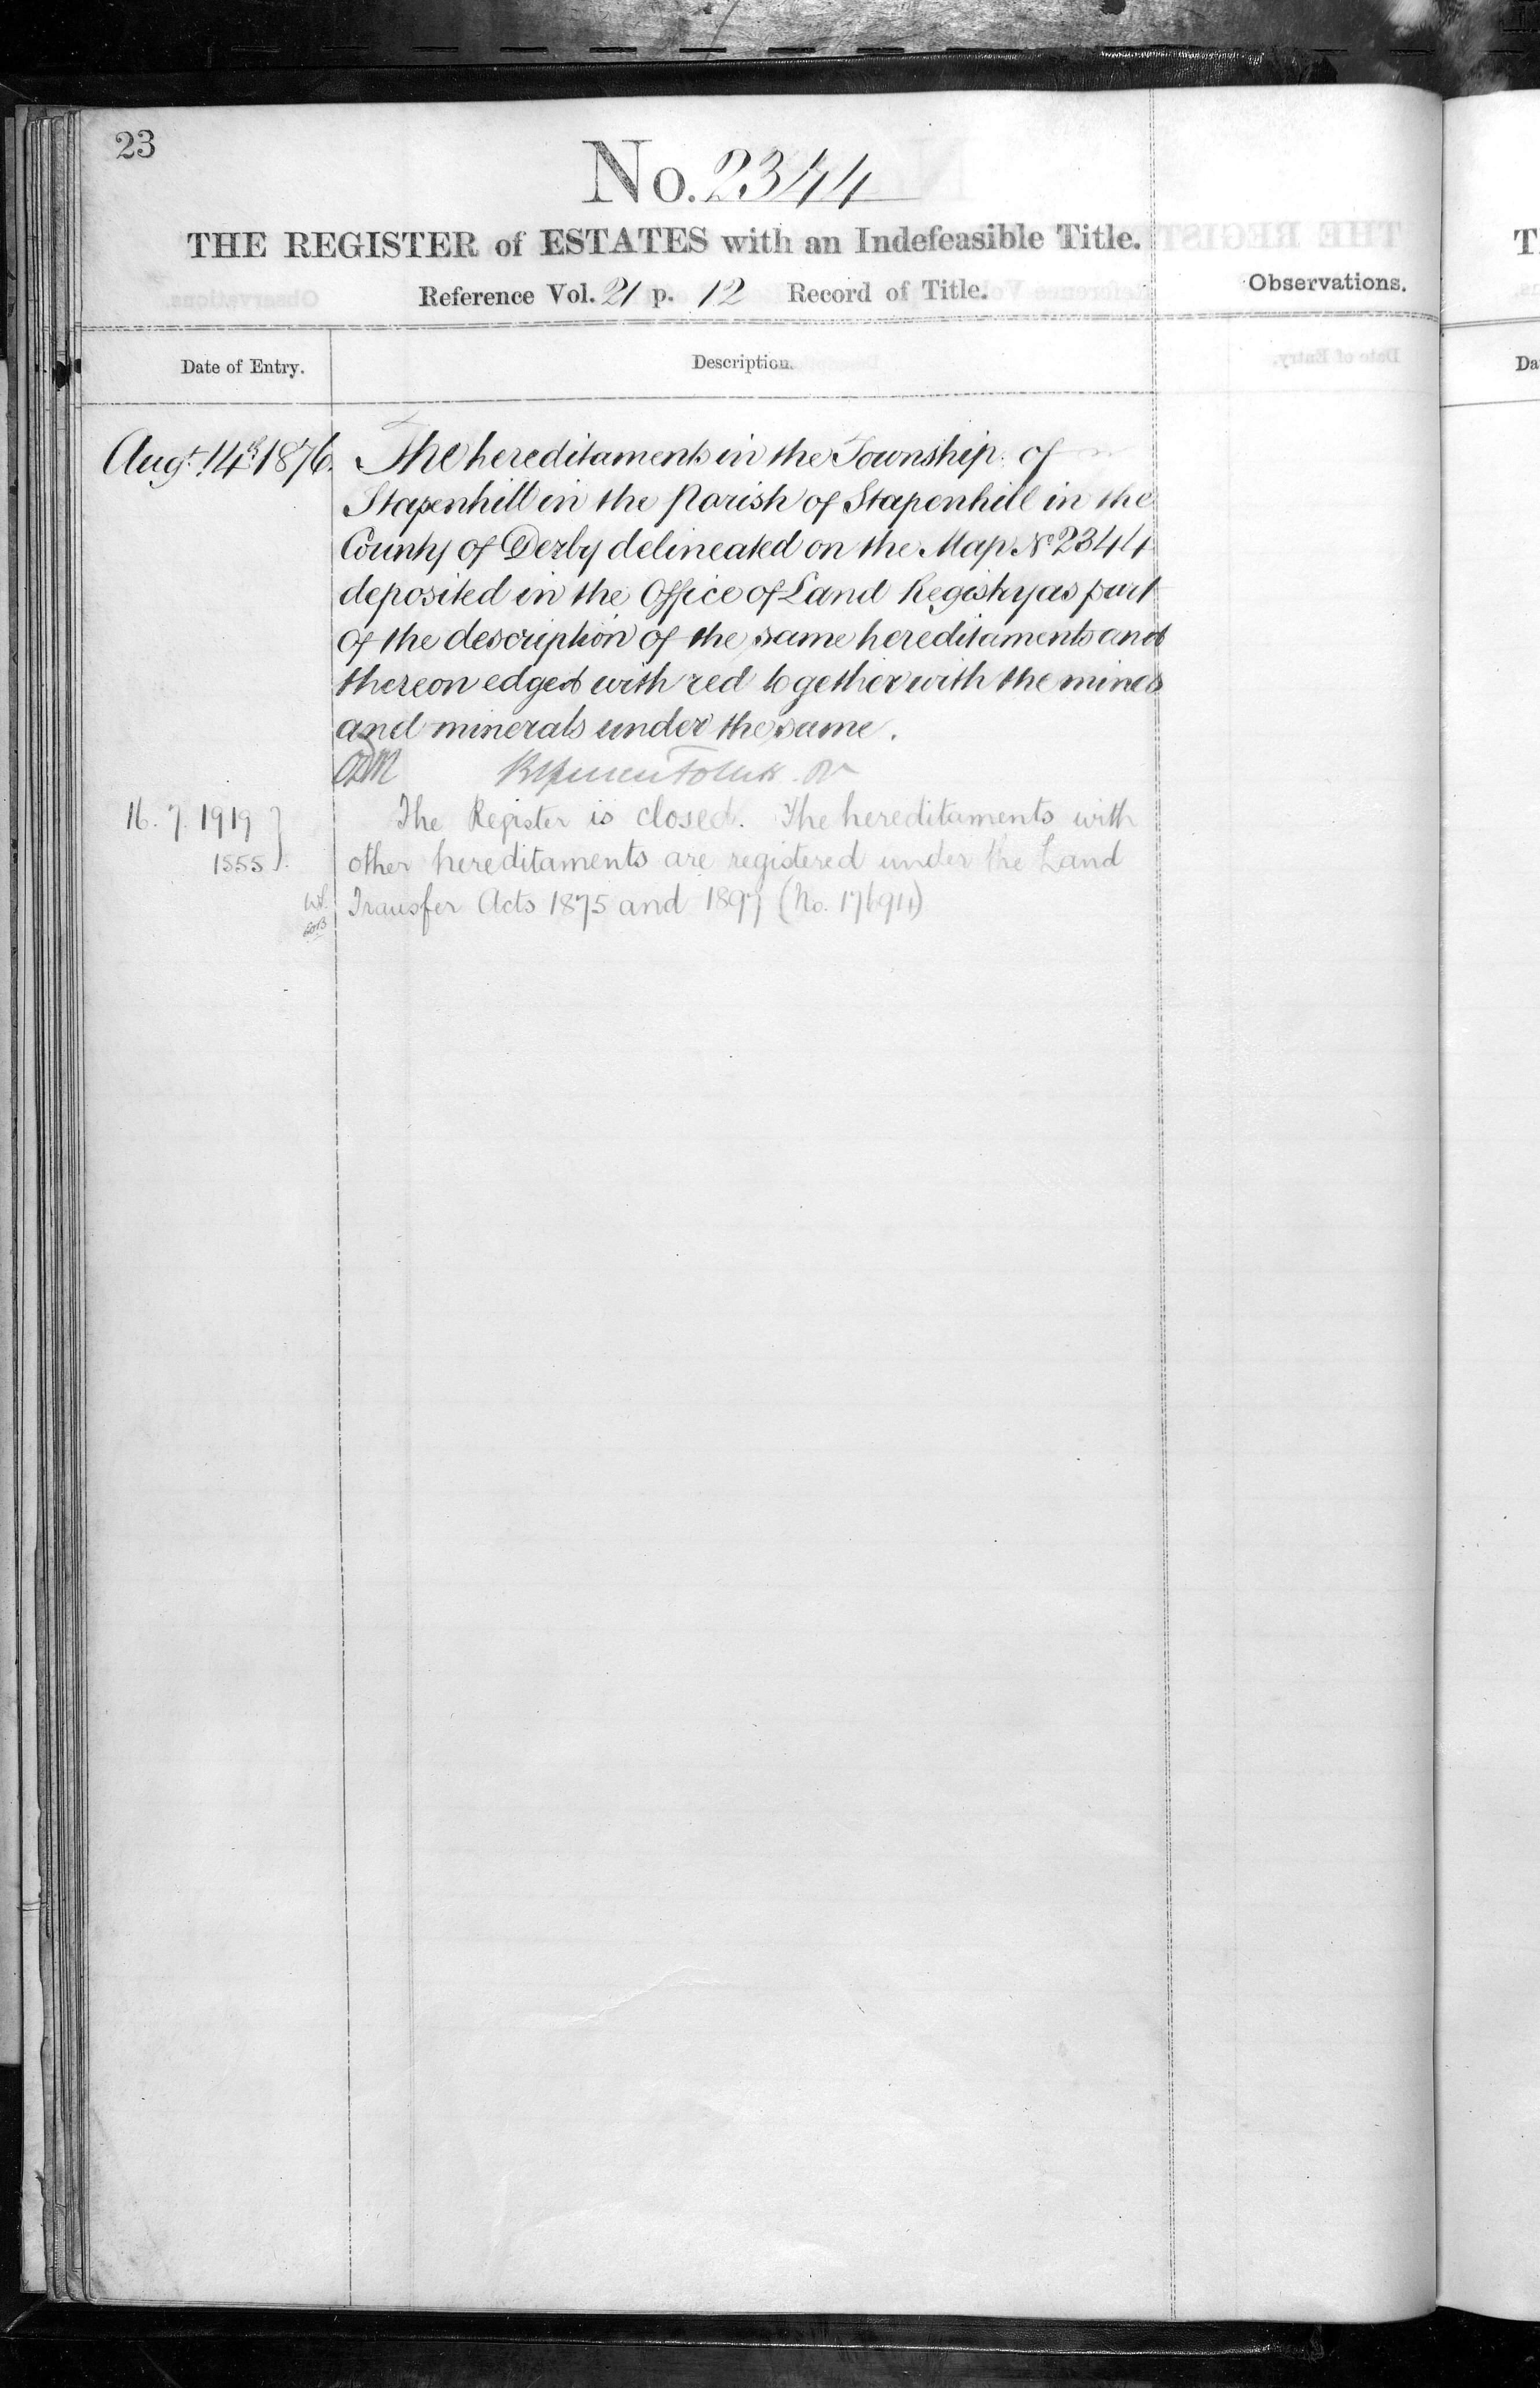 23
No. 2344
THE REGISTER of ESTATES with an Indefeasible Title.
Reference Vol. 21 p. 12 Record of Title.
Observations.
Date of Entry.
Description.
Augt. 14th 1876. The hereditaments in the Township of
Stapenhill in the Parish of Stapenhill in the
County of Derby delineated on the Map No 2344
deposited in the Office of Land Registry as part
of the description of the same hereditaments and
thereon edged with red together with the mines
and minerals under the same.
16. 7. 1919 The Register is closed. The hereditaments with
1555 other hereditaments are registered under the Land
Transfer Acts 1875 and 1897 (No. 17694)